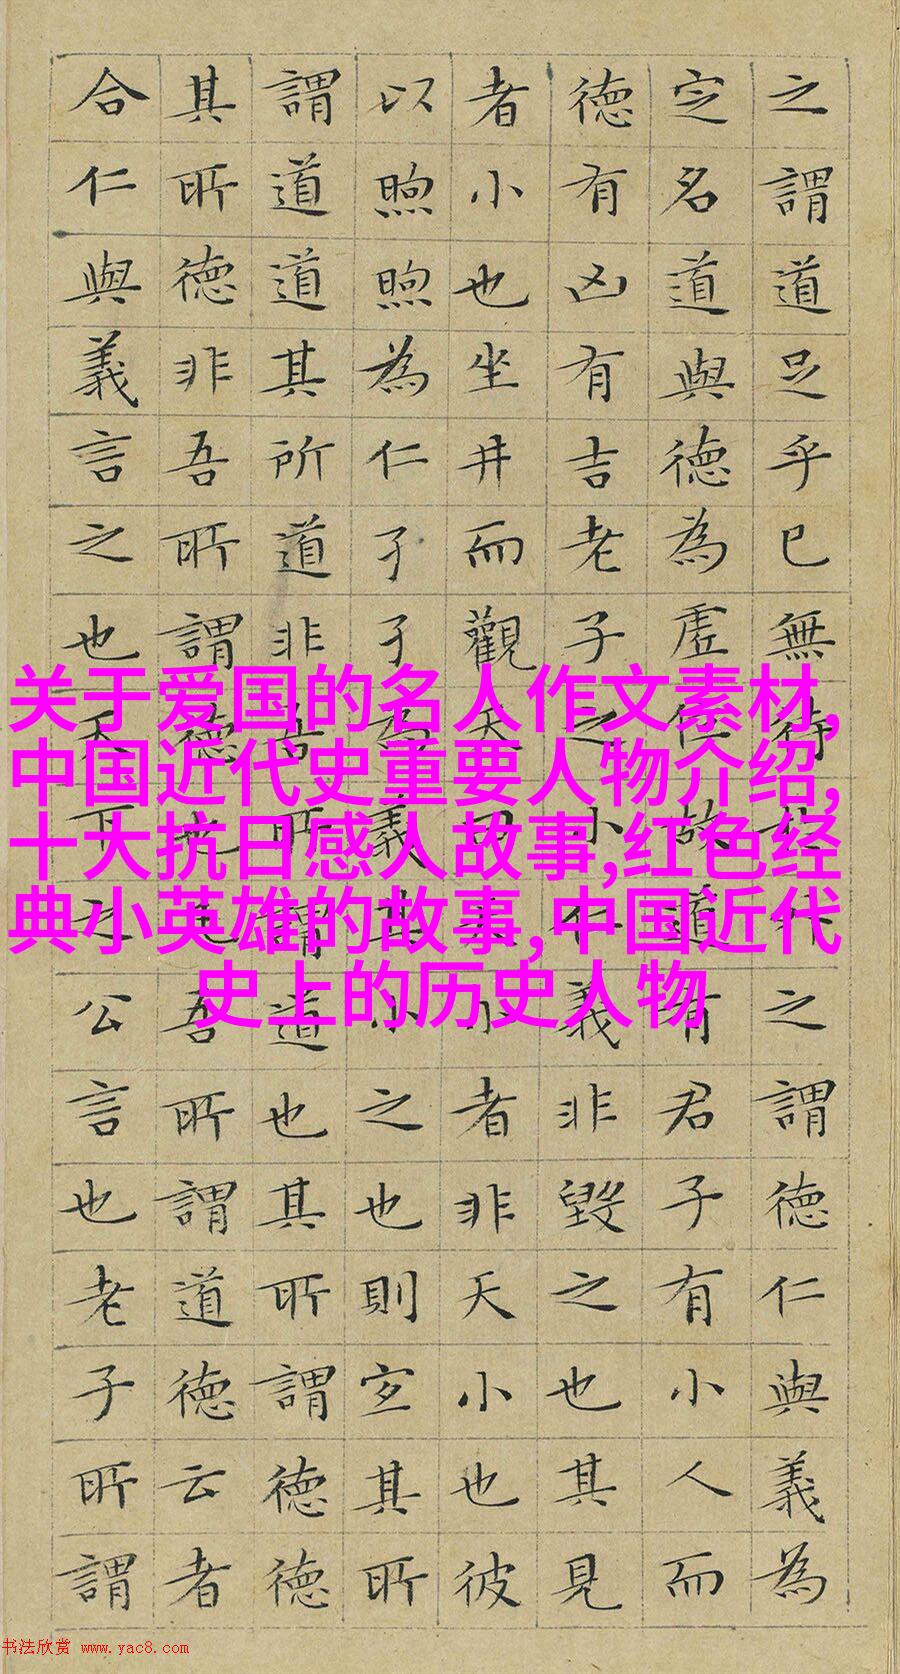 关于爱国的名人作文素材,
中国近代史重要人物介绍,
十大抗日感人故事,红色经
典小英雄的故事,中国近代
史上的历史人物
之謂道足乎己無待於外之謂德仁與義為
定名道與德為虛位故道有君子有小人而
德有凶有吉老子之小仁義非毀之也其見
者小也坐井而觀天曰天小者非天小也彼
以煦煦為仁孑孑為義其小之也則宜其所
謂道道其所道非吾所謂道也其所謂德德
其所德非吾所謂德也凡吾所謂道德云者
合仁與義言之也天下之公言也老子所謂
书法欣赏 www.yac8.com